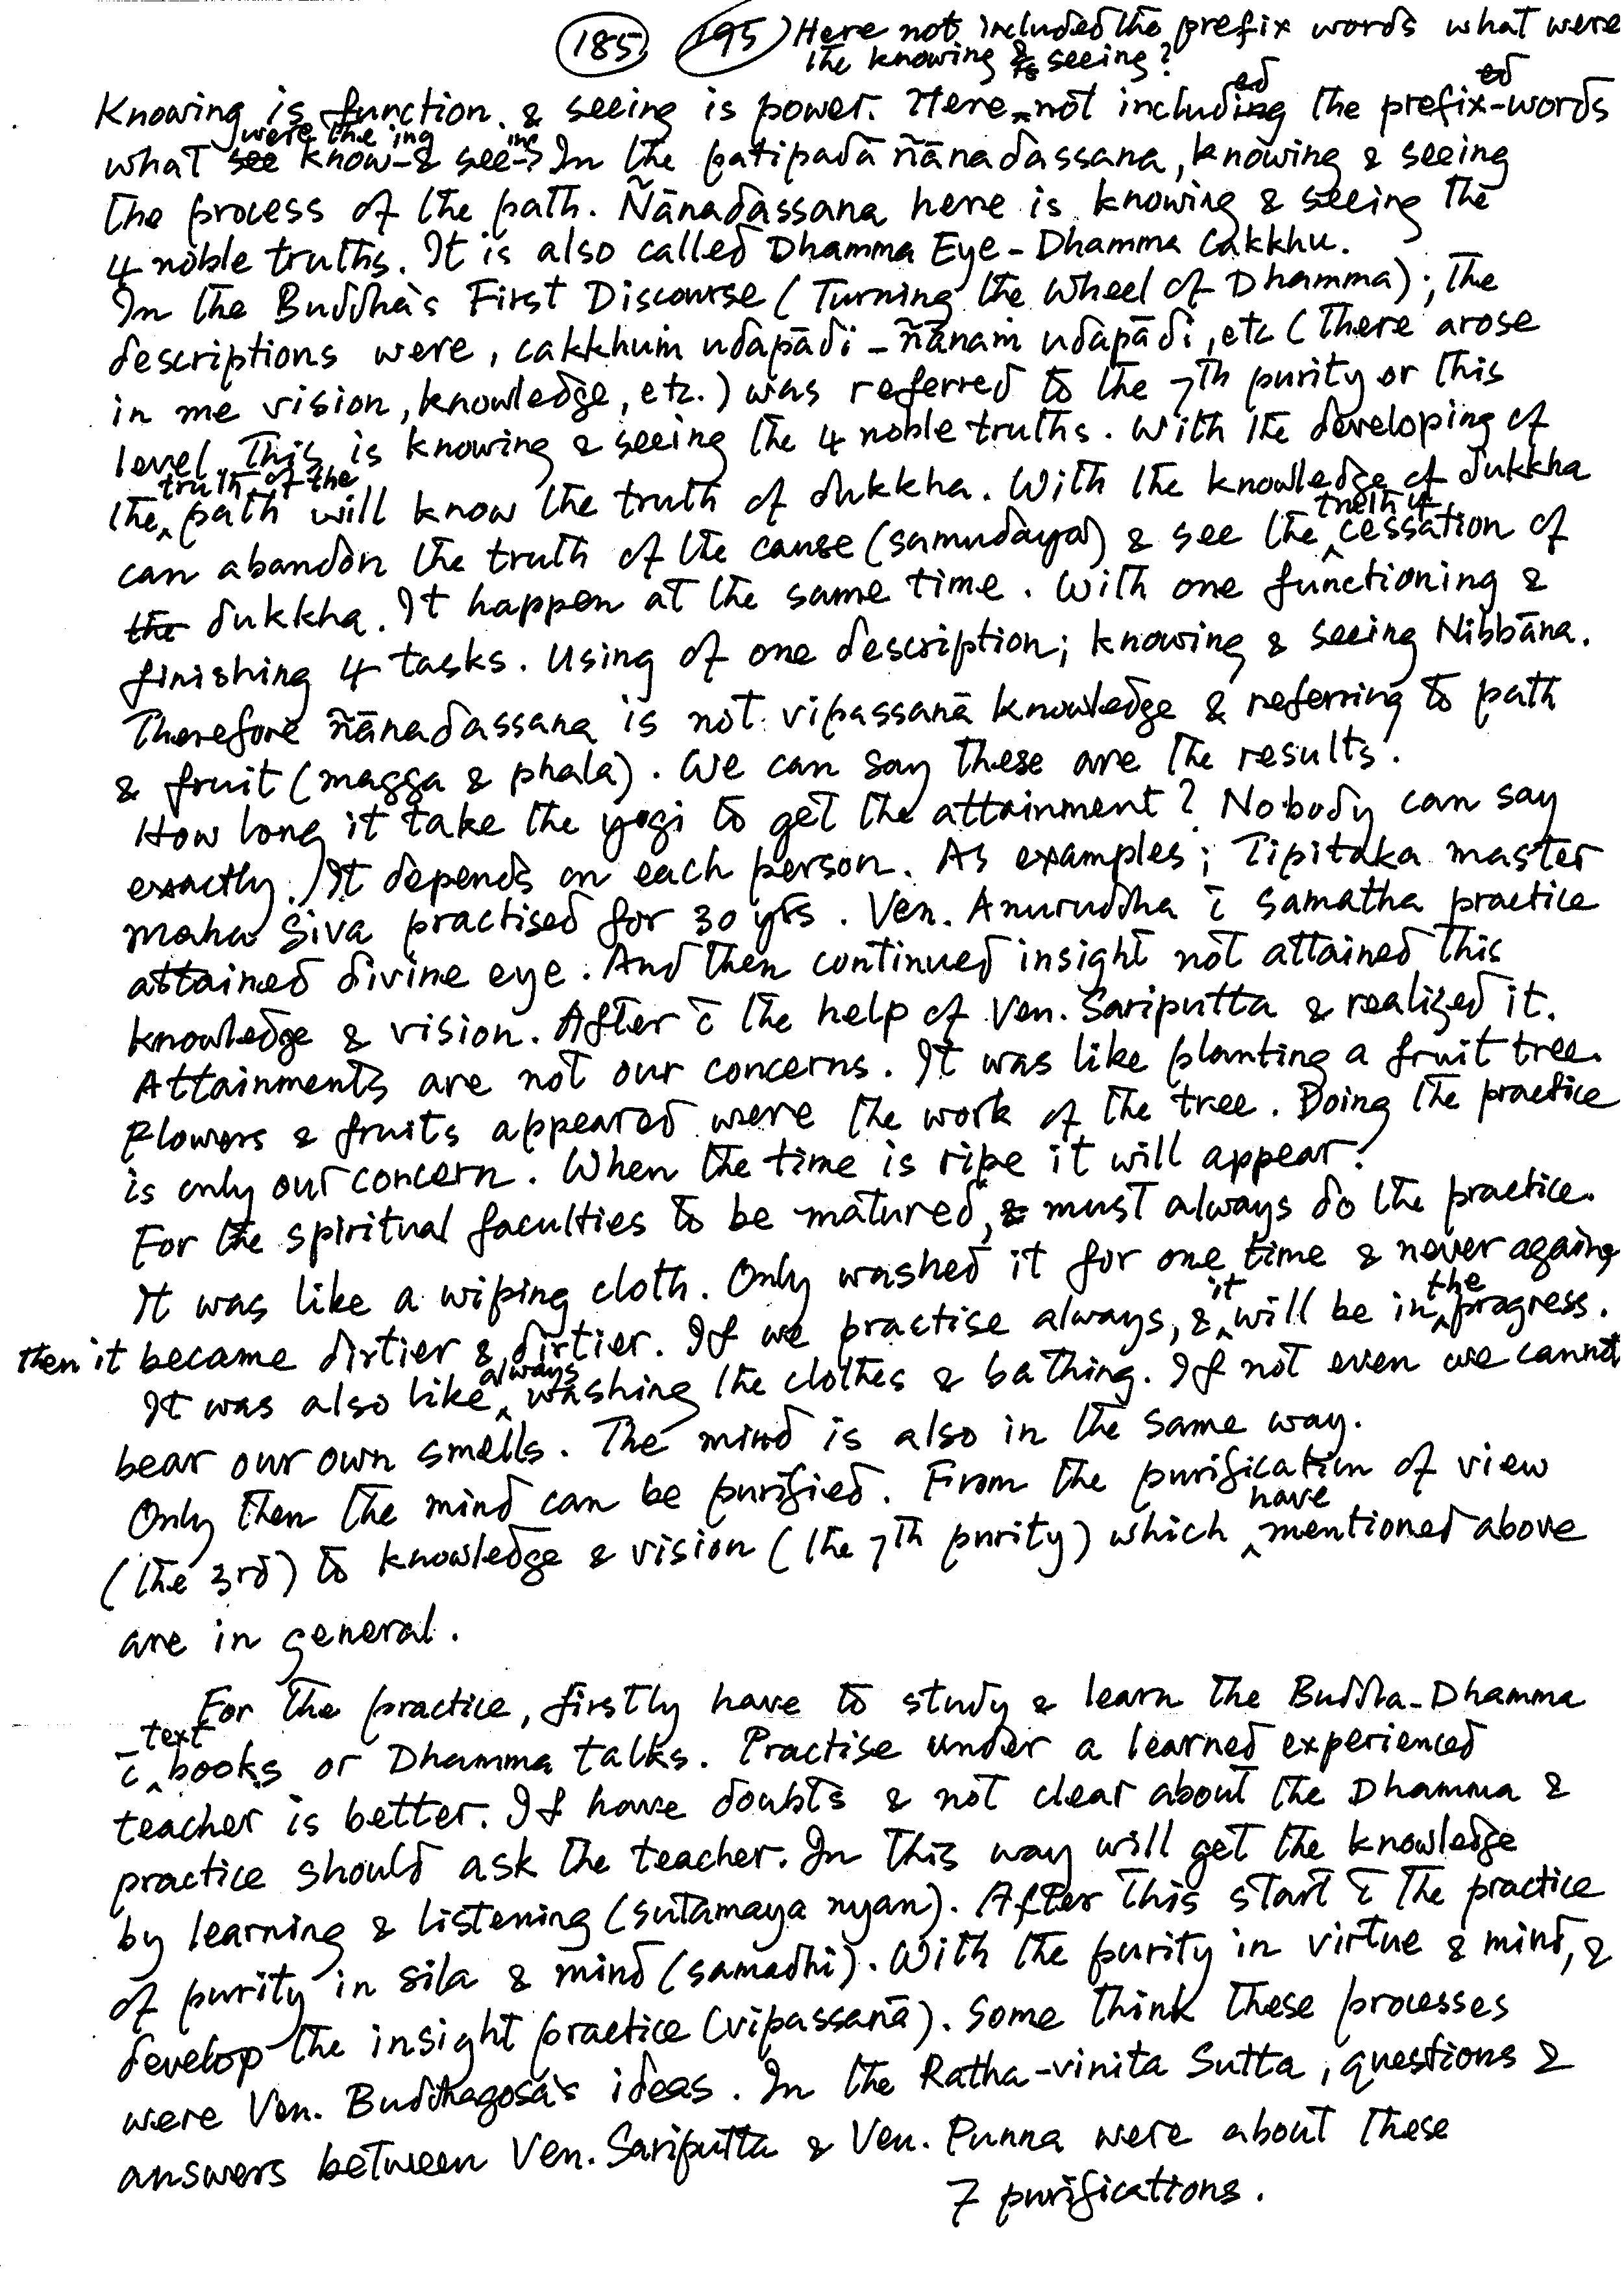 185 195) Here not included the prefix words what were
the knowing & seeing?
Knowing is function. & seeing is power. Here not included the prefixed-words
what were the knowing & seeing? In the patipadā ñānadassana, knowing & seeing
the process of the path. Ñānadassana here is knowing & seeing the
4 noble truths. It is also called Dhamma Eye - Dhamma Cakkhu.
In the Buddha's First Discourse (Turning the Wheel of Dhamma); the
descriptions were, cakkhuṁ udapādi - ñānaṁ udapādi, etc (there arose
in me vision, knowledge, etc.) was referred to the 7th purity or this
level. This is knowing & seeing the 4 noble truths. With the developing of
the truth of the path will know the truth of dukkha. With the knowledge of dukkha
can abandon the truth of the cause (samudaya) & see the truth of cessation of
the dukkha. It happen at the same time. With one functioning &
finishing 4 tasks. Using of one description; knowing & seeing Nibbāna.
Therefore ñānadassana is not vipassanā knowledge & referring to path
& fruit (magga & phala). We can say these are the results.
How long it take the yogi to get the attainment? Nobody can say
exactly. It depends on each person. As examples; Tipitaka master
Maha Siva practised for 30 yrs. Ven. Anuruddha c̄ samatha practice
attained divine eye. And then continued insight not attained this
knowledge & vision. After c̄ the help of Ven. Sariputta & realized it.
Attainments are not our concerns. It was like planting a fruit tree.
Flowers & fruits appeared were the work of the tree. Doing the practice
is only our concern. When the time is ripe it will appear.
For the spiritual faculties to be matured, & must always do the practice.
It was like a wiping cloth. Only washed it for one time & never again,
then it became dirtier & dirtier. If we practise always, & it will be in the progress.
It was also like always washing the clothes & bathing. If not even we cannot
bear our own smells. The mind is also in the same way.
Only then the mind can be purified. From the purification of view
(the 3rd) to knowledge & vision (the 7th purity) which have mentioned above
are in general.
For the practice, firstly have to study & learn the Buddha-Dhamma
c̄ text books or Dhamma talks. Practise under a learned experienced
teacher is better. If have doubts & not clear about the Dhamma &
practice should ask the teacher. In this way will get the knowledge
by learning & listening (sutamaya nyan). After this start c̄ the practice
of purity in sila & mind (samadhi). With the purity in virtue & mind, &
develop the insight practice (vipassanā). Some think these processes
were Ven. Buddhagosa's ideas. In the Ratha-vinita Sutta, questions &
answers between Ven. Sariputta & Ven. Punna were about these
7 purifications.